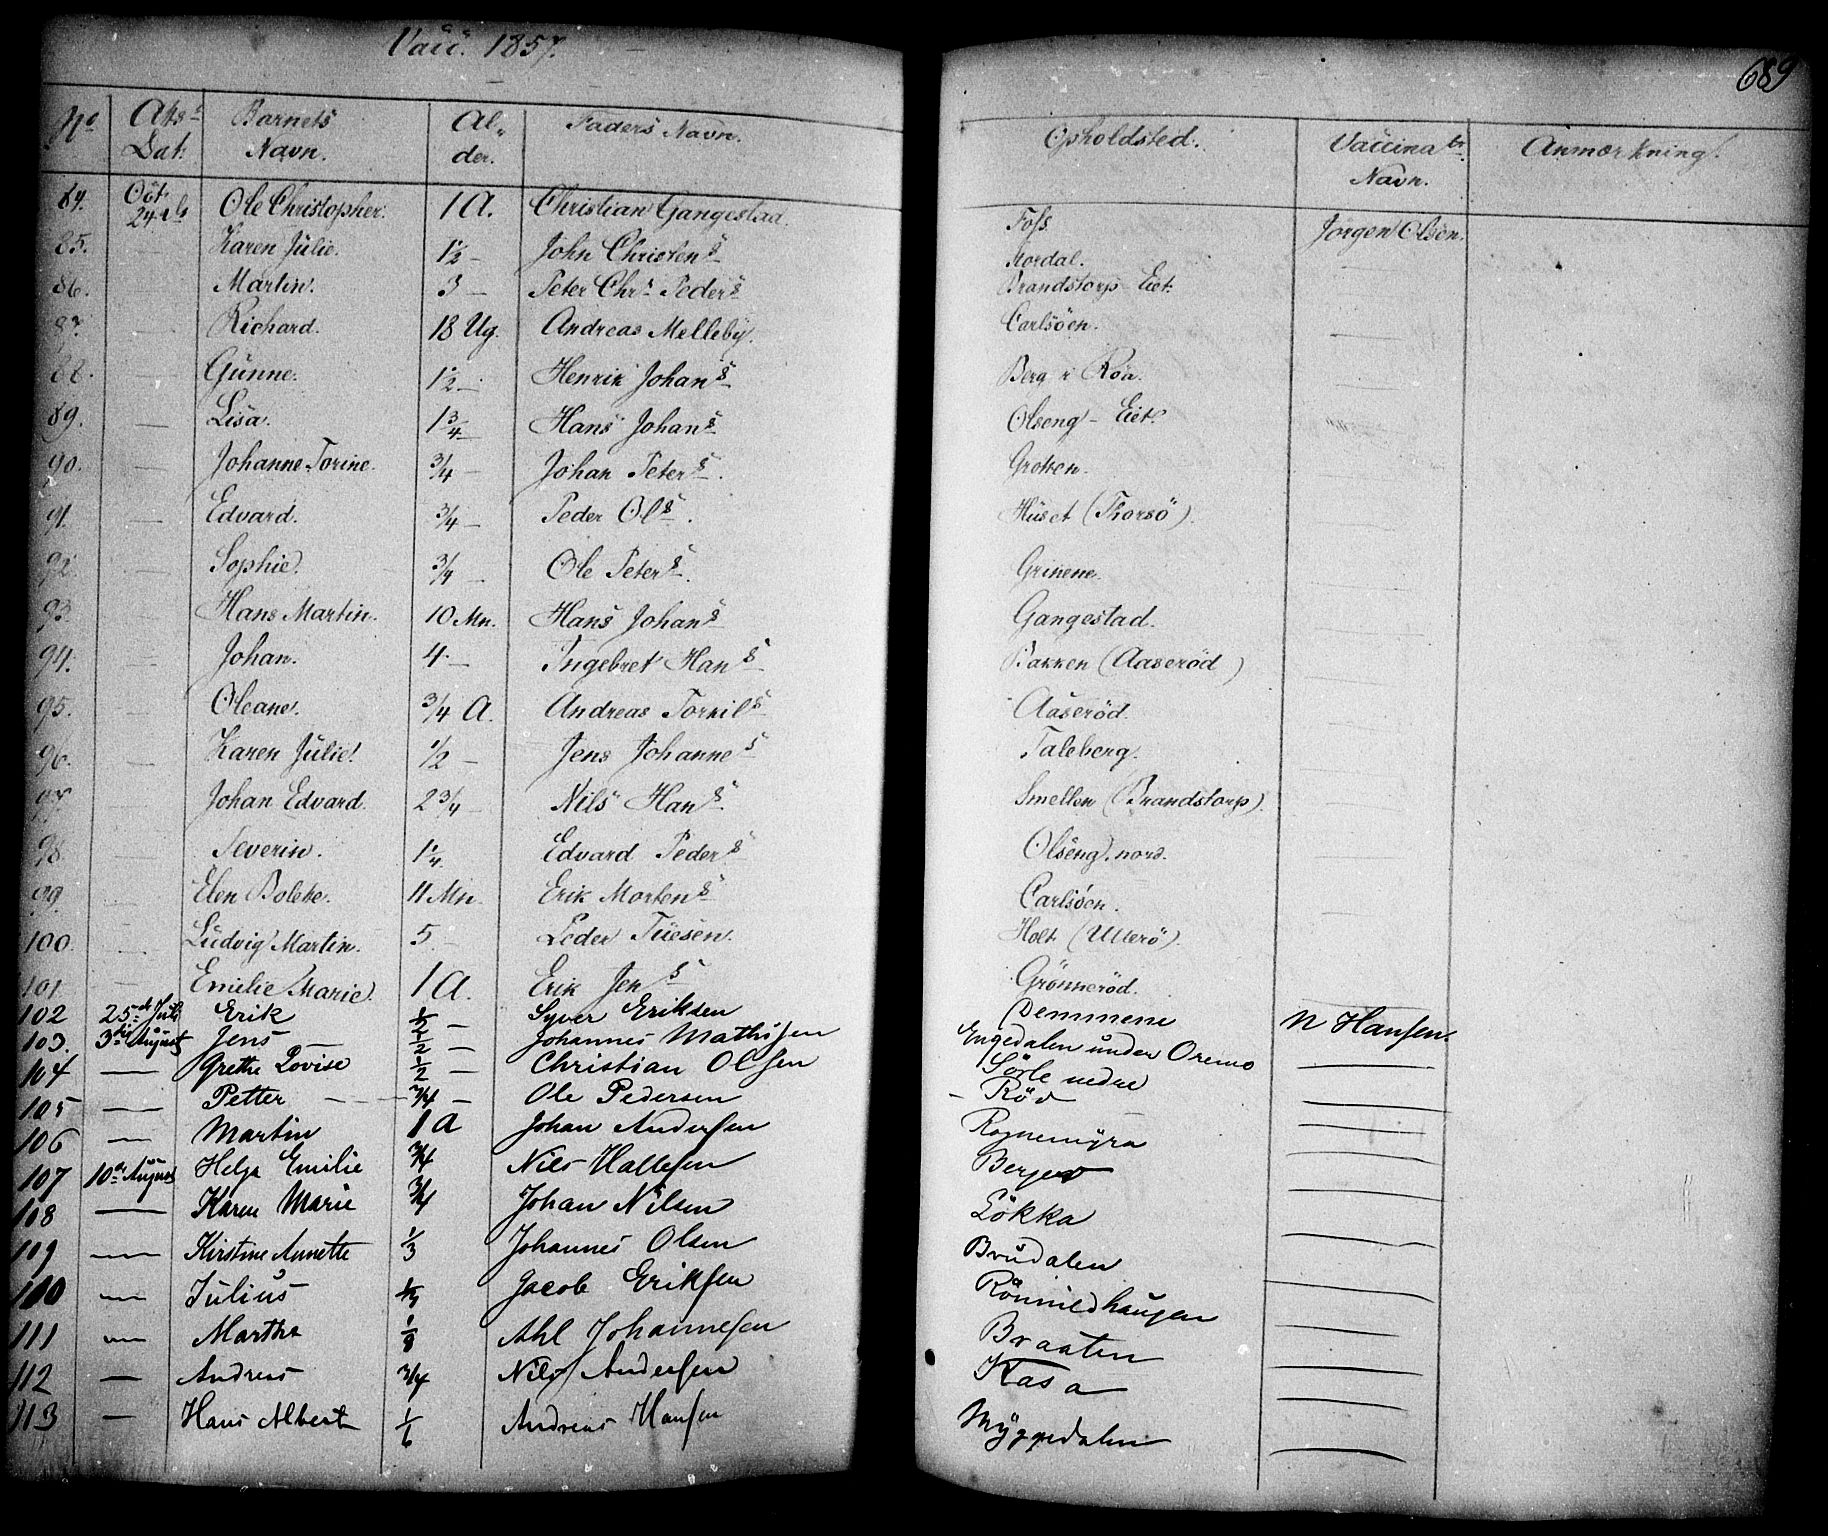 Vacc. 1857.
689
No Atts. Dat: Barnets Navn. Alder. Faders Navn. Opholdsted. Vaccinatr. Navn. Anmærkning.
84. Oct. 24de Ole Christopher. 1 A. Christian Gangestad. Foss. Jörgen Olsen.
85. — Karen Julie. 1½ — John Christens. Nordal. —
86. — Martin. 3 — Peter Chr. Peders. Brandstorp Eiet. —
87. — Richard. 18 Ug. Andreas Melleby. Carlsöen. —
88. — Gunne. 1½ — Henrik Johans. Berg i Röa. —
89. — Lisa. 1¾ — Hans Johans. Olseng – Eiet. —
90. — Johanne Torine. ¾ — Johan Peters. Groken. —
91. — Edvard. ¾ — Peder Ols. Huset (Thorsö). —
92. — Sophie. ¾ — Ole Peters. Grinene. —
93. — Hans Martin. 10 Mn. Hans Johans. Gangestad. —
94. — Johan. 4 — Ingebret Hans. Bakken (Aaseröd) —
95. — Oleane. ¾ A. Andreas Torkils. Aaseröd. —
96. — Karen Julie. ½ — Jens Johannes. Taleberg. —
97. — Johan Edvard. 2¾ — Nils Hans. Smellen (Brandstorp). —
98. — Severin. 1¼. Edvard Peders. Olseng, nord. —
99. — Elen Bolette. 11 Mn. Erik Mortens. Carlsöen. —
100. — Ludvig Martin. 5. — Peder Tuesen. Holt (Utterö). —
101 — Emilie Marie. 1 A. Erik Jens. Grönneröd. —
102 25de Juli Erik ½ — Syver Eriksen Demmene N Hansen.
103. 3die August Jens ½ — Johannes Mathisen Engedalen under Oremo —
104 — Grethe Lovise ½ — Christian Olsen Sörle nedre —
105 — Petter ¾ — Ole Pedersen Röd —
106 — Martin 1 A Johan Andersen Rognemyra —
107 10de August Helga Emilie ¾ Nils Hallesen Berger —
108 — Karen Marie ¾ Johan Nilsen Lökka —
109 — Kirstine Annette ⅓ Johannes Olsen Brudalen —
110 — Julius Jacob Eriksen Rönnildhaugen —
111 — Marthe ⅛ Ahl Johannesen Braaten —
112 — Andreas ¾ Nils Andersen Kasa —
113 — Hans Albert 1/6 Andreas Hansen Myggedalen —